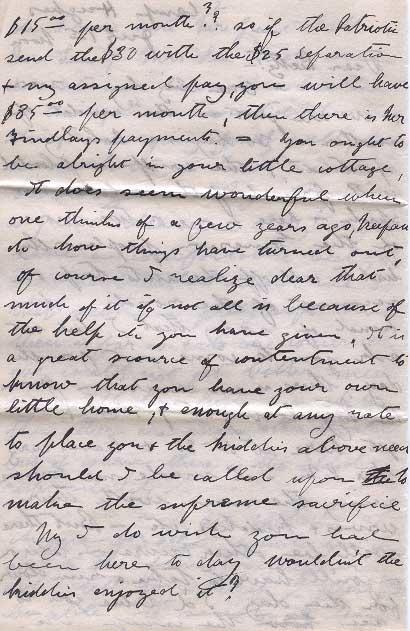 $15.00 per month?? so if the Patriotic
send the $30 with the $25 Separation
& my assigned pay, you will have
$85.00 per month, then there is Mr
Findlays payments. – You ought to
be alright in your little cottage,
It does seem wonderful when
one thinks of a few years ago,
to how things have turned out,
of course I realize dear that
much of it if not all is because of
the help you have given, It is
a great scource of contentment to
know that you have your own
little home, & enough at any rate
to place you & the kiddies above need
should I be called upon to
make the supreme sacrifice
My I do wish you had
been here to day wouldn't the
kiddies enjoyed it?